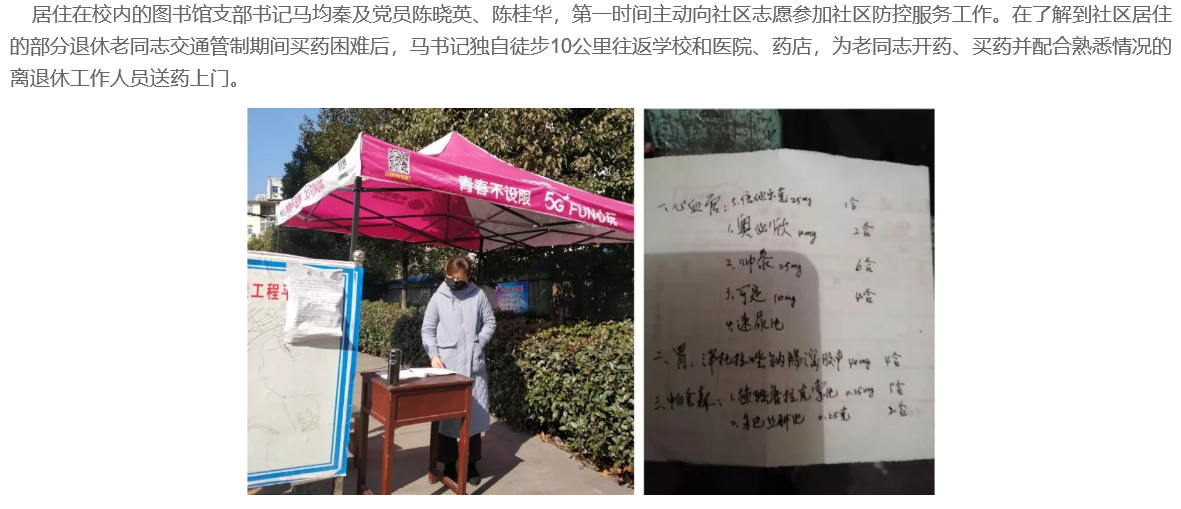 居住在校内的图书馆支部书记马均秦及党员陈晓英、陈桂华，第一时间主动向社区志愿参加社区防控服务工作。在了解到社区居住
的部分退休老同志交通管制期间买药困难后，马书记独自徒步10公里往返学校和医院、药店，为老同志开药、买药并配合熟悉情况的
离退休工作人员送药上门。
青春不设限 5G+ FUN心玩
工程平
一、心血管：5.倍他乐克25mg 1合
1.奥必欣 4mg 2合
2. 25mg 6合
3.可定 10mg 4合
4.速尿片
二、胃：泮托拉唑钠肠溶胶囊 40mg 4合
三、帕金森：1.盐酸普拉克索片 0.25mg 5合
2.多巴丝肼片 0.25克 2合